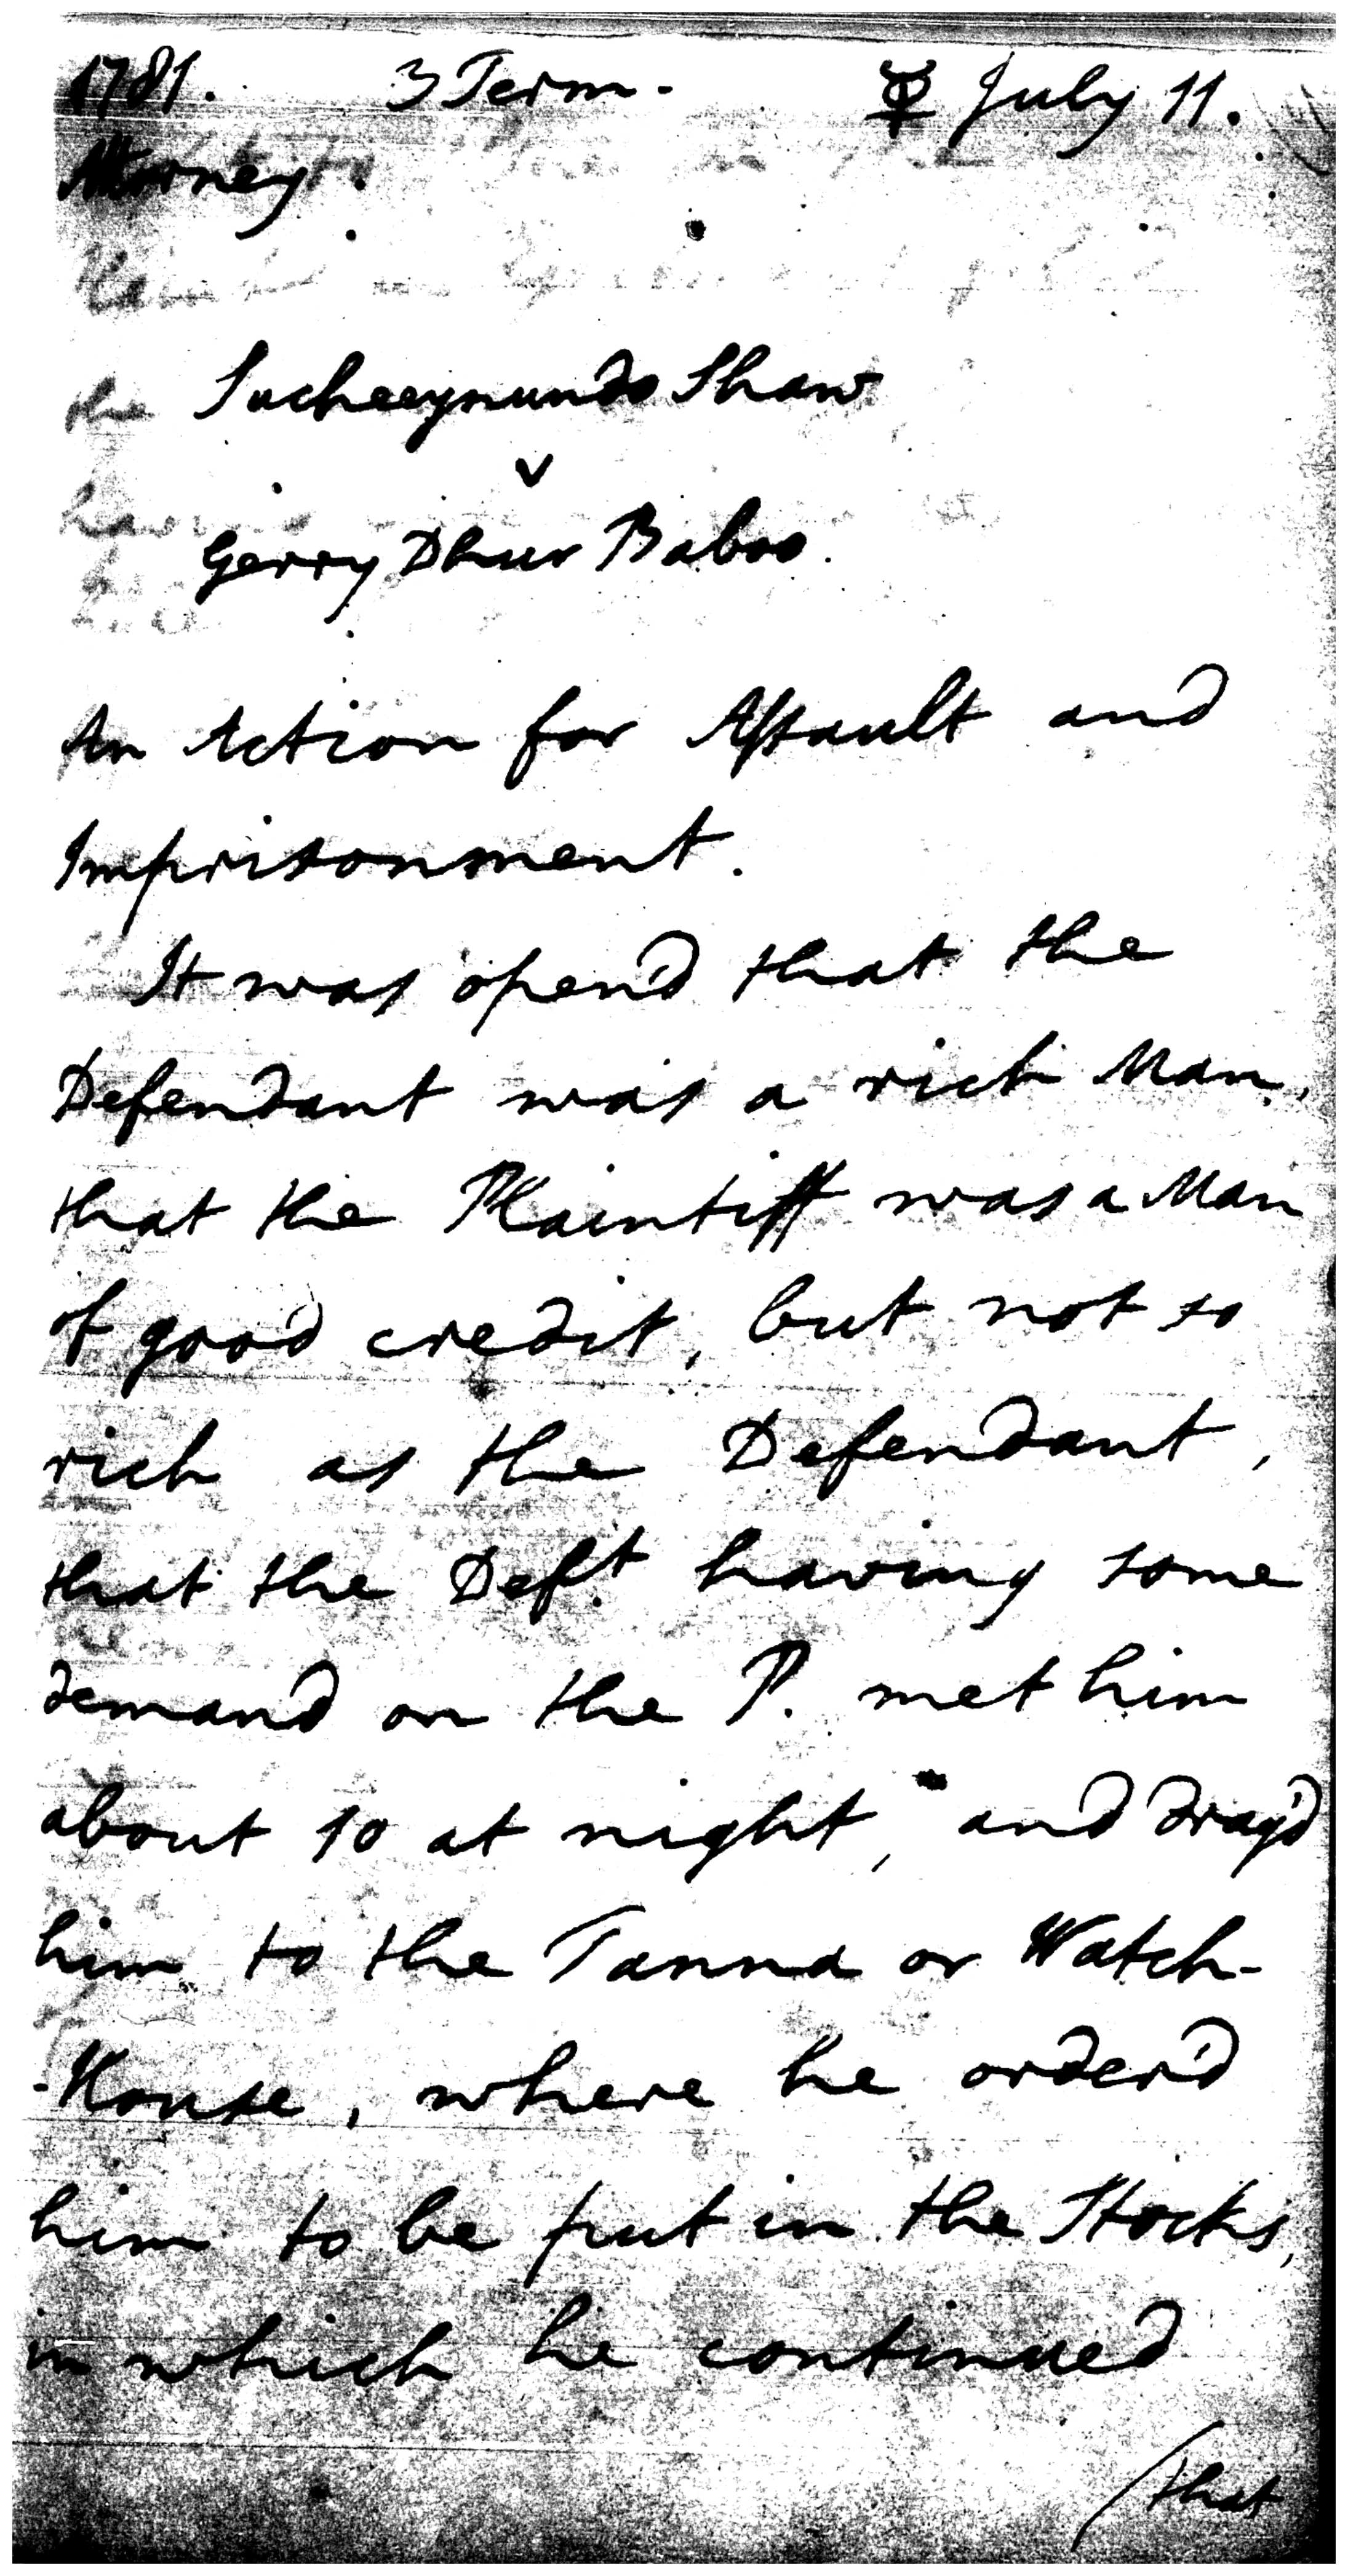 1781. 3 Term. ☿ July 11.
Attorney.
the Sucheeynundo Shaw
v
Gerry Dhur Baboo.
An Action for Assault and
Imprisonment.
It was open'd that the
Defendant was a rich Man,
that the Plaintiff was a Man
of good credit, but not so
rich as the Defendant,
that the Deft. having some
demand on the P. met him
about 10 at night, and drag'd
him to the Tanna or Watch-
-House, where he order'd
him to be put in the Stocks,
in which he continued
/that